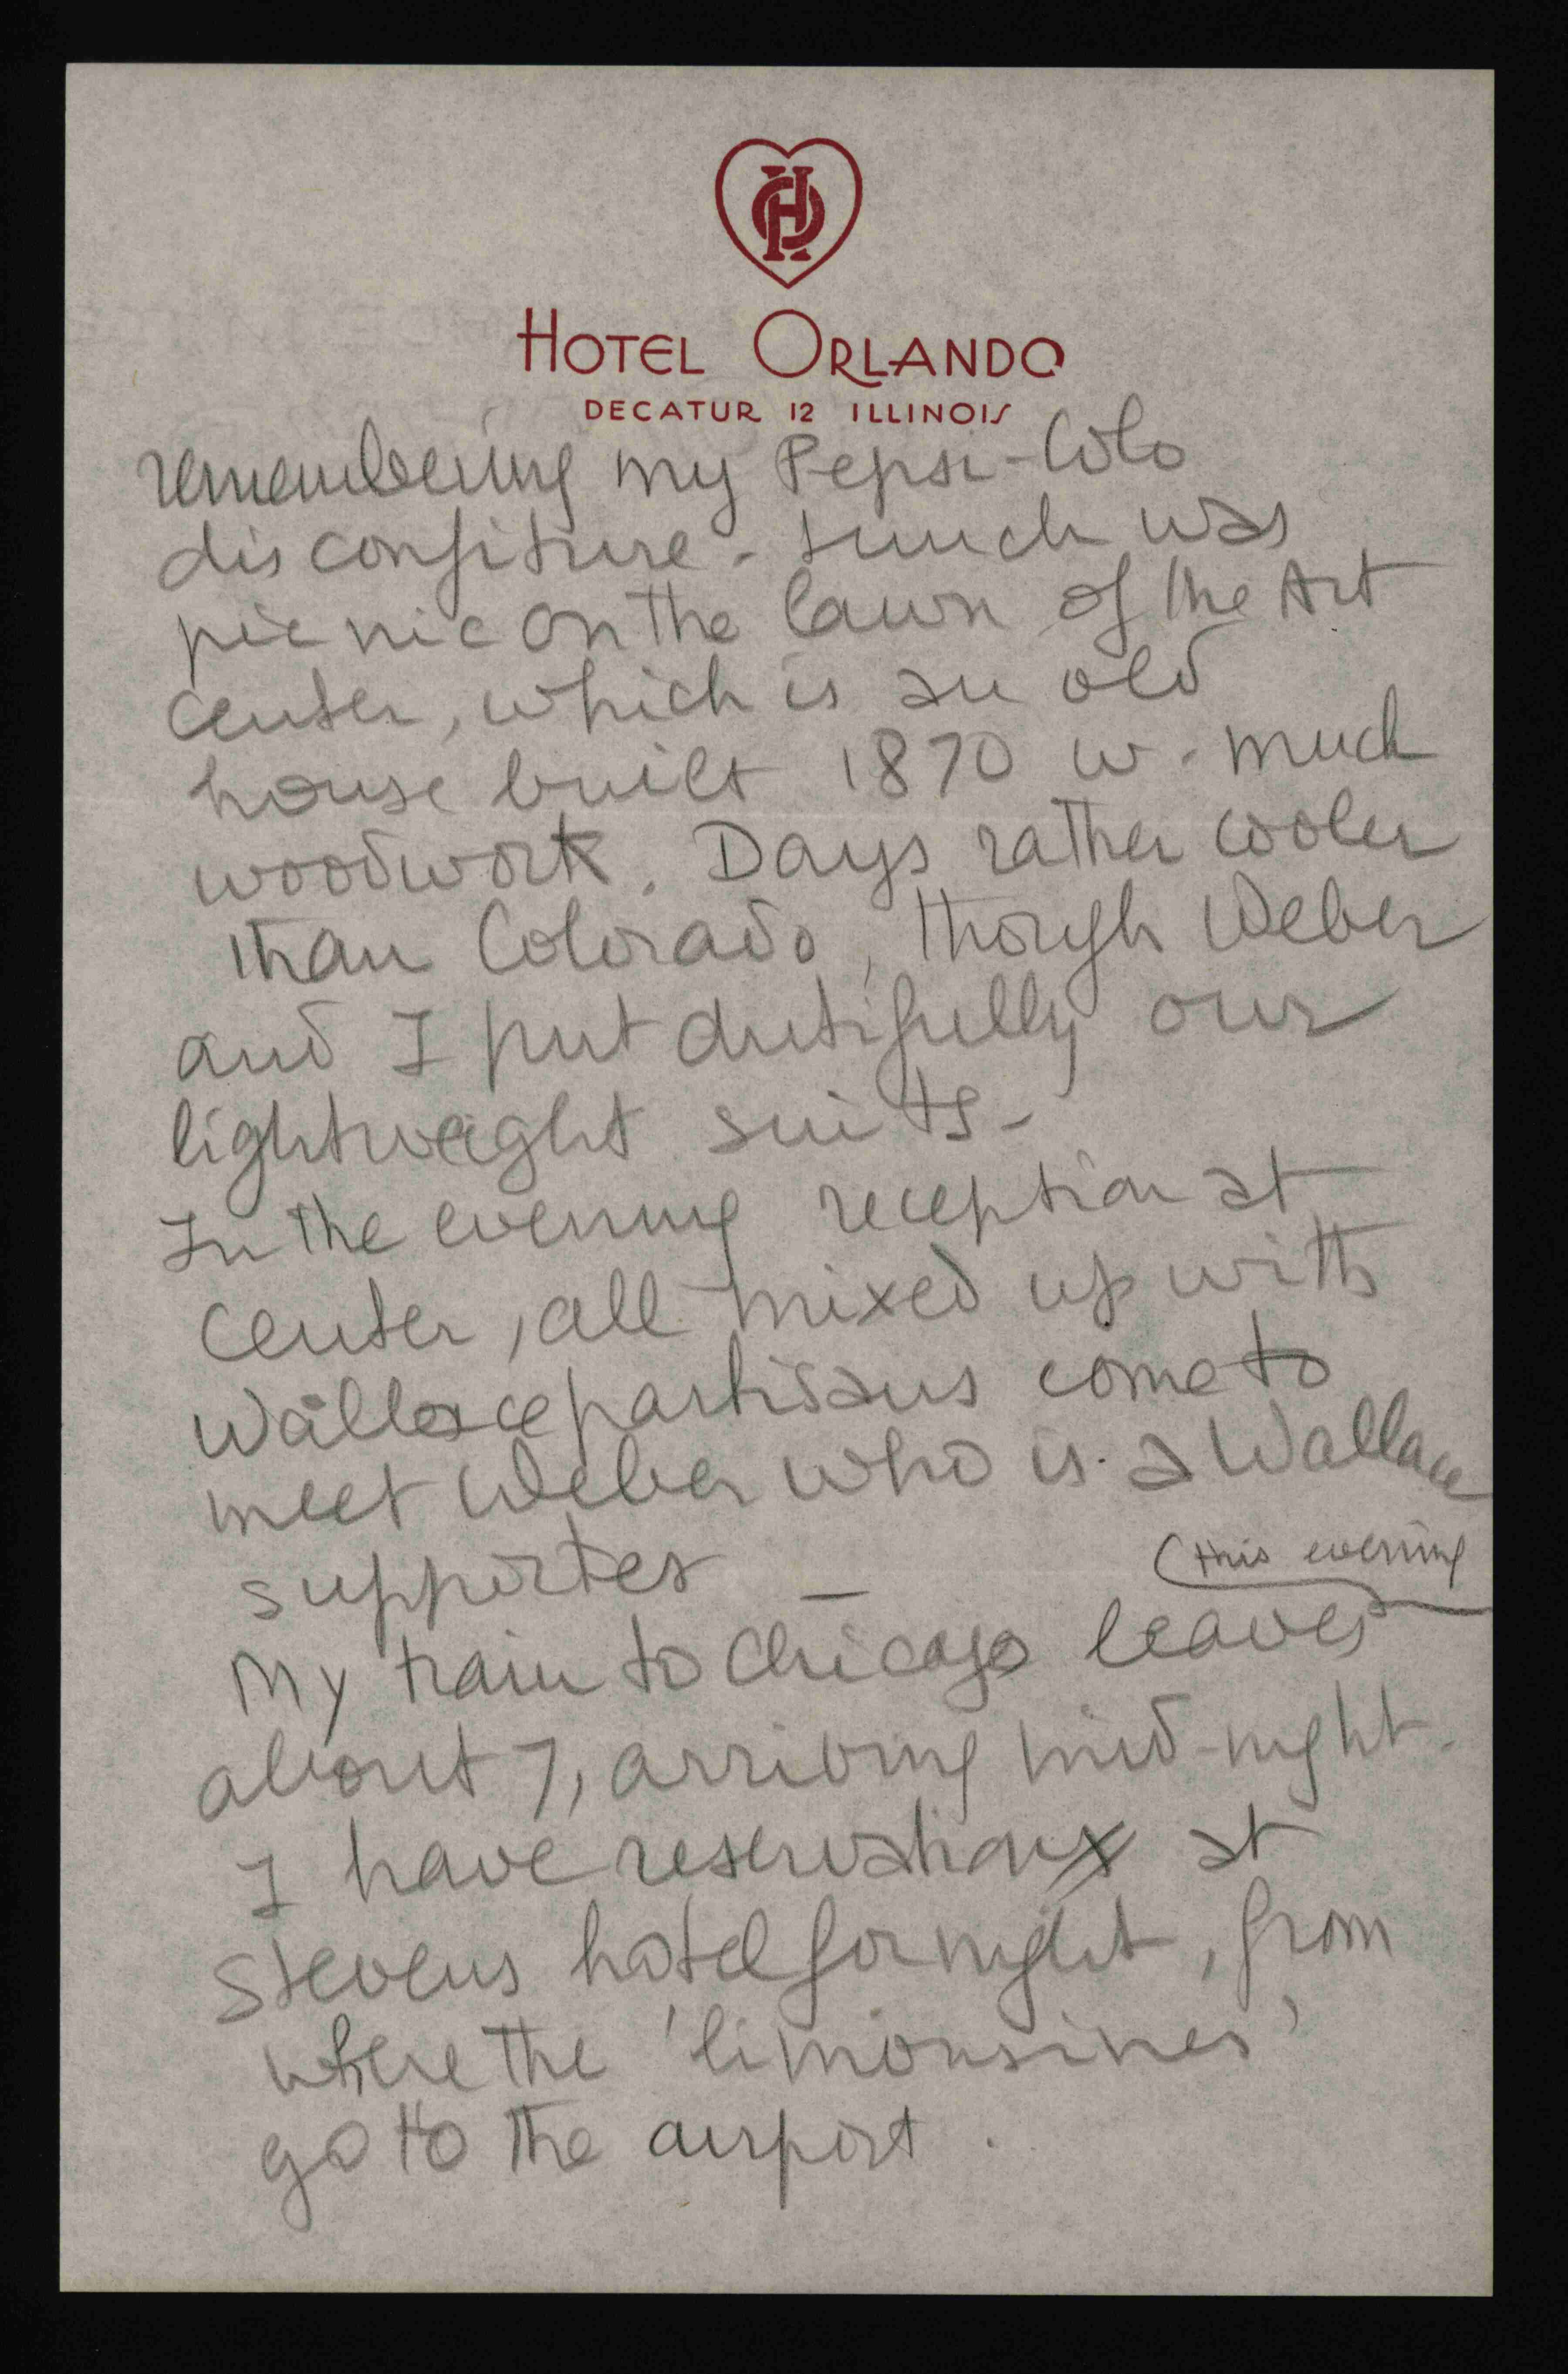 HO
HOTEL ORLANDO
DECATUR 12 ILLINOIS
remembering my Pepsi-Cola
disconfiture - Lunch was
picnic on the lawn of the Art
center, which is an old
house built 1870 w. much
woodwork. Days rather cooler
than Colorado, though Weber
and I put dutifully our
lightweight suits -
In the evening reception at
center, all mixed up with
Wallace partisans come to
meet Weber who is a Wallace
supporter -
(this evening
My train to Chicago leaves
about 7, arriving mid-night.
I have reservation at
Stevens hotel for night, from
where the 'limousines'
go to the airport.